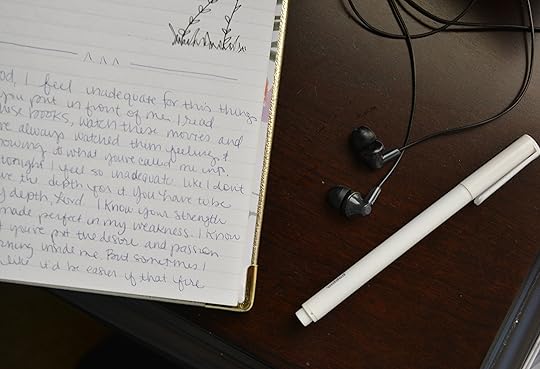 God, I feel inadequate for this thing
you put in front of me. I read
those books, watch these movies and
I've always watched them feeling &
knowing to what you've called me in.
tonight I feel so inadequate. Like I don't
have the depth for it. You have to be
my depth, Lord. I know your strength
made perfect in my weakness. I know
that you've put the desire and passion
burning inside me. But sometimes I
like it'd be easier if that fire